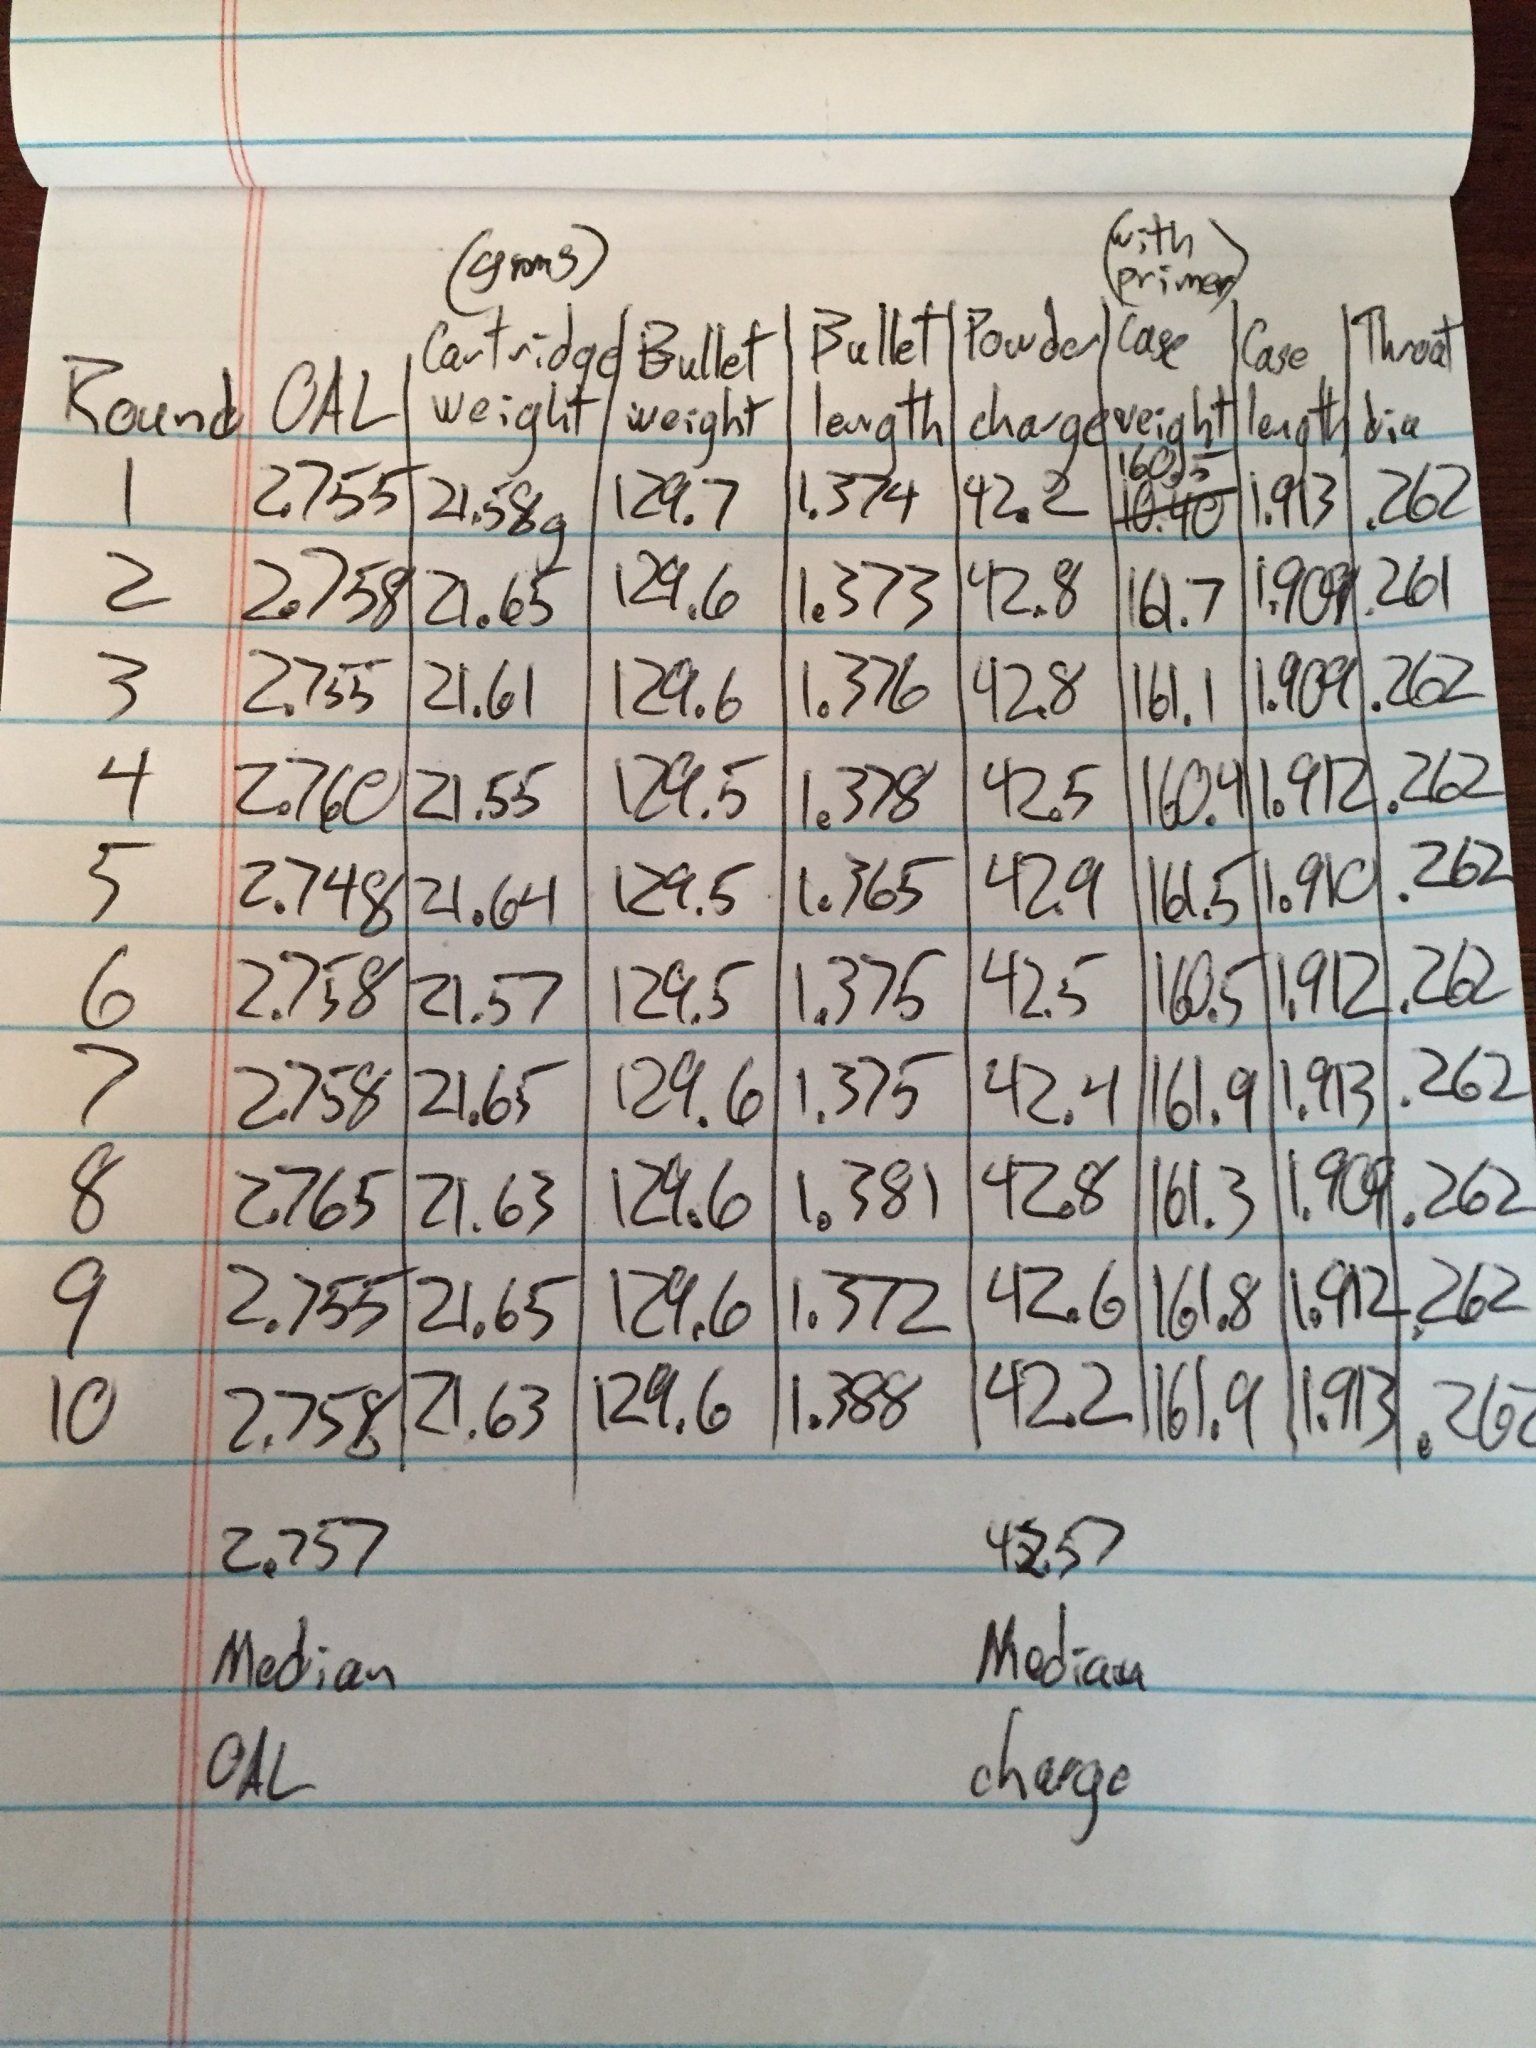 (grams) (with primer)
Round OAL Cartridge weight Bullet weight Bullet length Powder charge Case weight Case length Throat dia
1 2.755 21.58g 129.7 1.374 42.2 160.5 10.40 1.913 .262
2 2.758 21.65 129.6 1.373 42.8 161.7 1.909 .261
3 2.755 21.61 129.6 1.376 42.8 161.1 1.909 .262
4 2.760 21.55 129.5 1.378 42.5 160.4 1.912 .262
5 2.748 21.64 129.5 1.365 42.9 161.5 1.910 .262
6 2.758 21.57 129.5 1.375 42.5 160.5 1.912 .262
7 2.758 21.65 129.6 1.375 42.4 161.9 1.913 .262
8 2.765 21.63 129.6 1.381 42.8 161.3 1.909 .262
9 2.755 21.65 129.6 1.372 42.6 161.8 1.912 .262
10 2.758 21.63 129.6 1.388 42.2 161.9 1.913 .262
2.757 42.57
Median Median
OAL charge